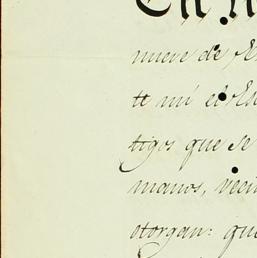 En
nueve de
te mí el
tigos que se
manos, veci
otorgan: que